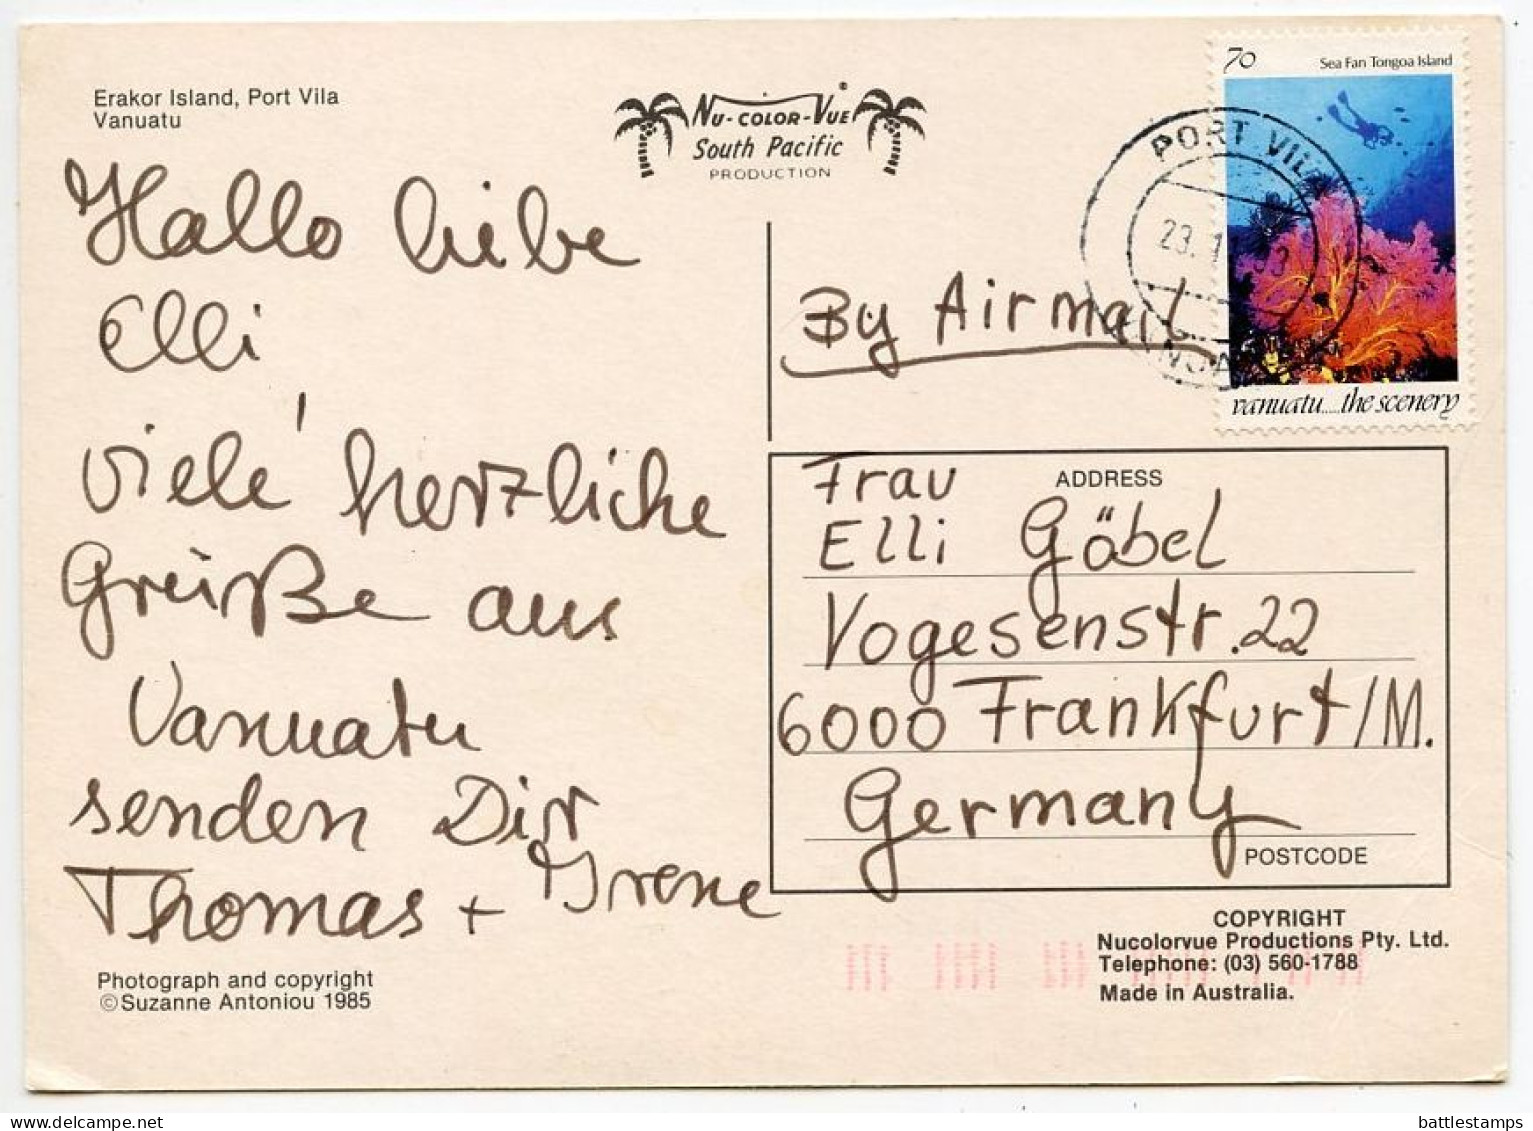 Erakor Island, Port Vila
Vanuatu
Hallo liebe
Elli!
viele herzliche
Grüße aus
Vanuatu
senden Dir
Thomas + Irene
Photograph and copyright
©Suzanne Antoniou 1985
NU-COLOR-VUE®
South Pacific
PRODUCTION
70
Sea Fan Tongoa Island
vanuatu....the scenery
PORT VILA
By Airmail
ADDRESS
Frau
Elli Göbel
Vogesenstr. 22
6000 Frankfurt/M.
Germany
POSTCODE
COPYRIGHT
Nucolorvue Productions Pty. Ltd.
Telephone: (03) 560-1788
Made in Australia.
battlestamps